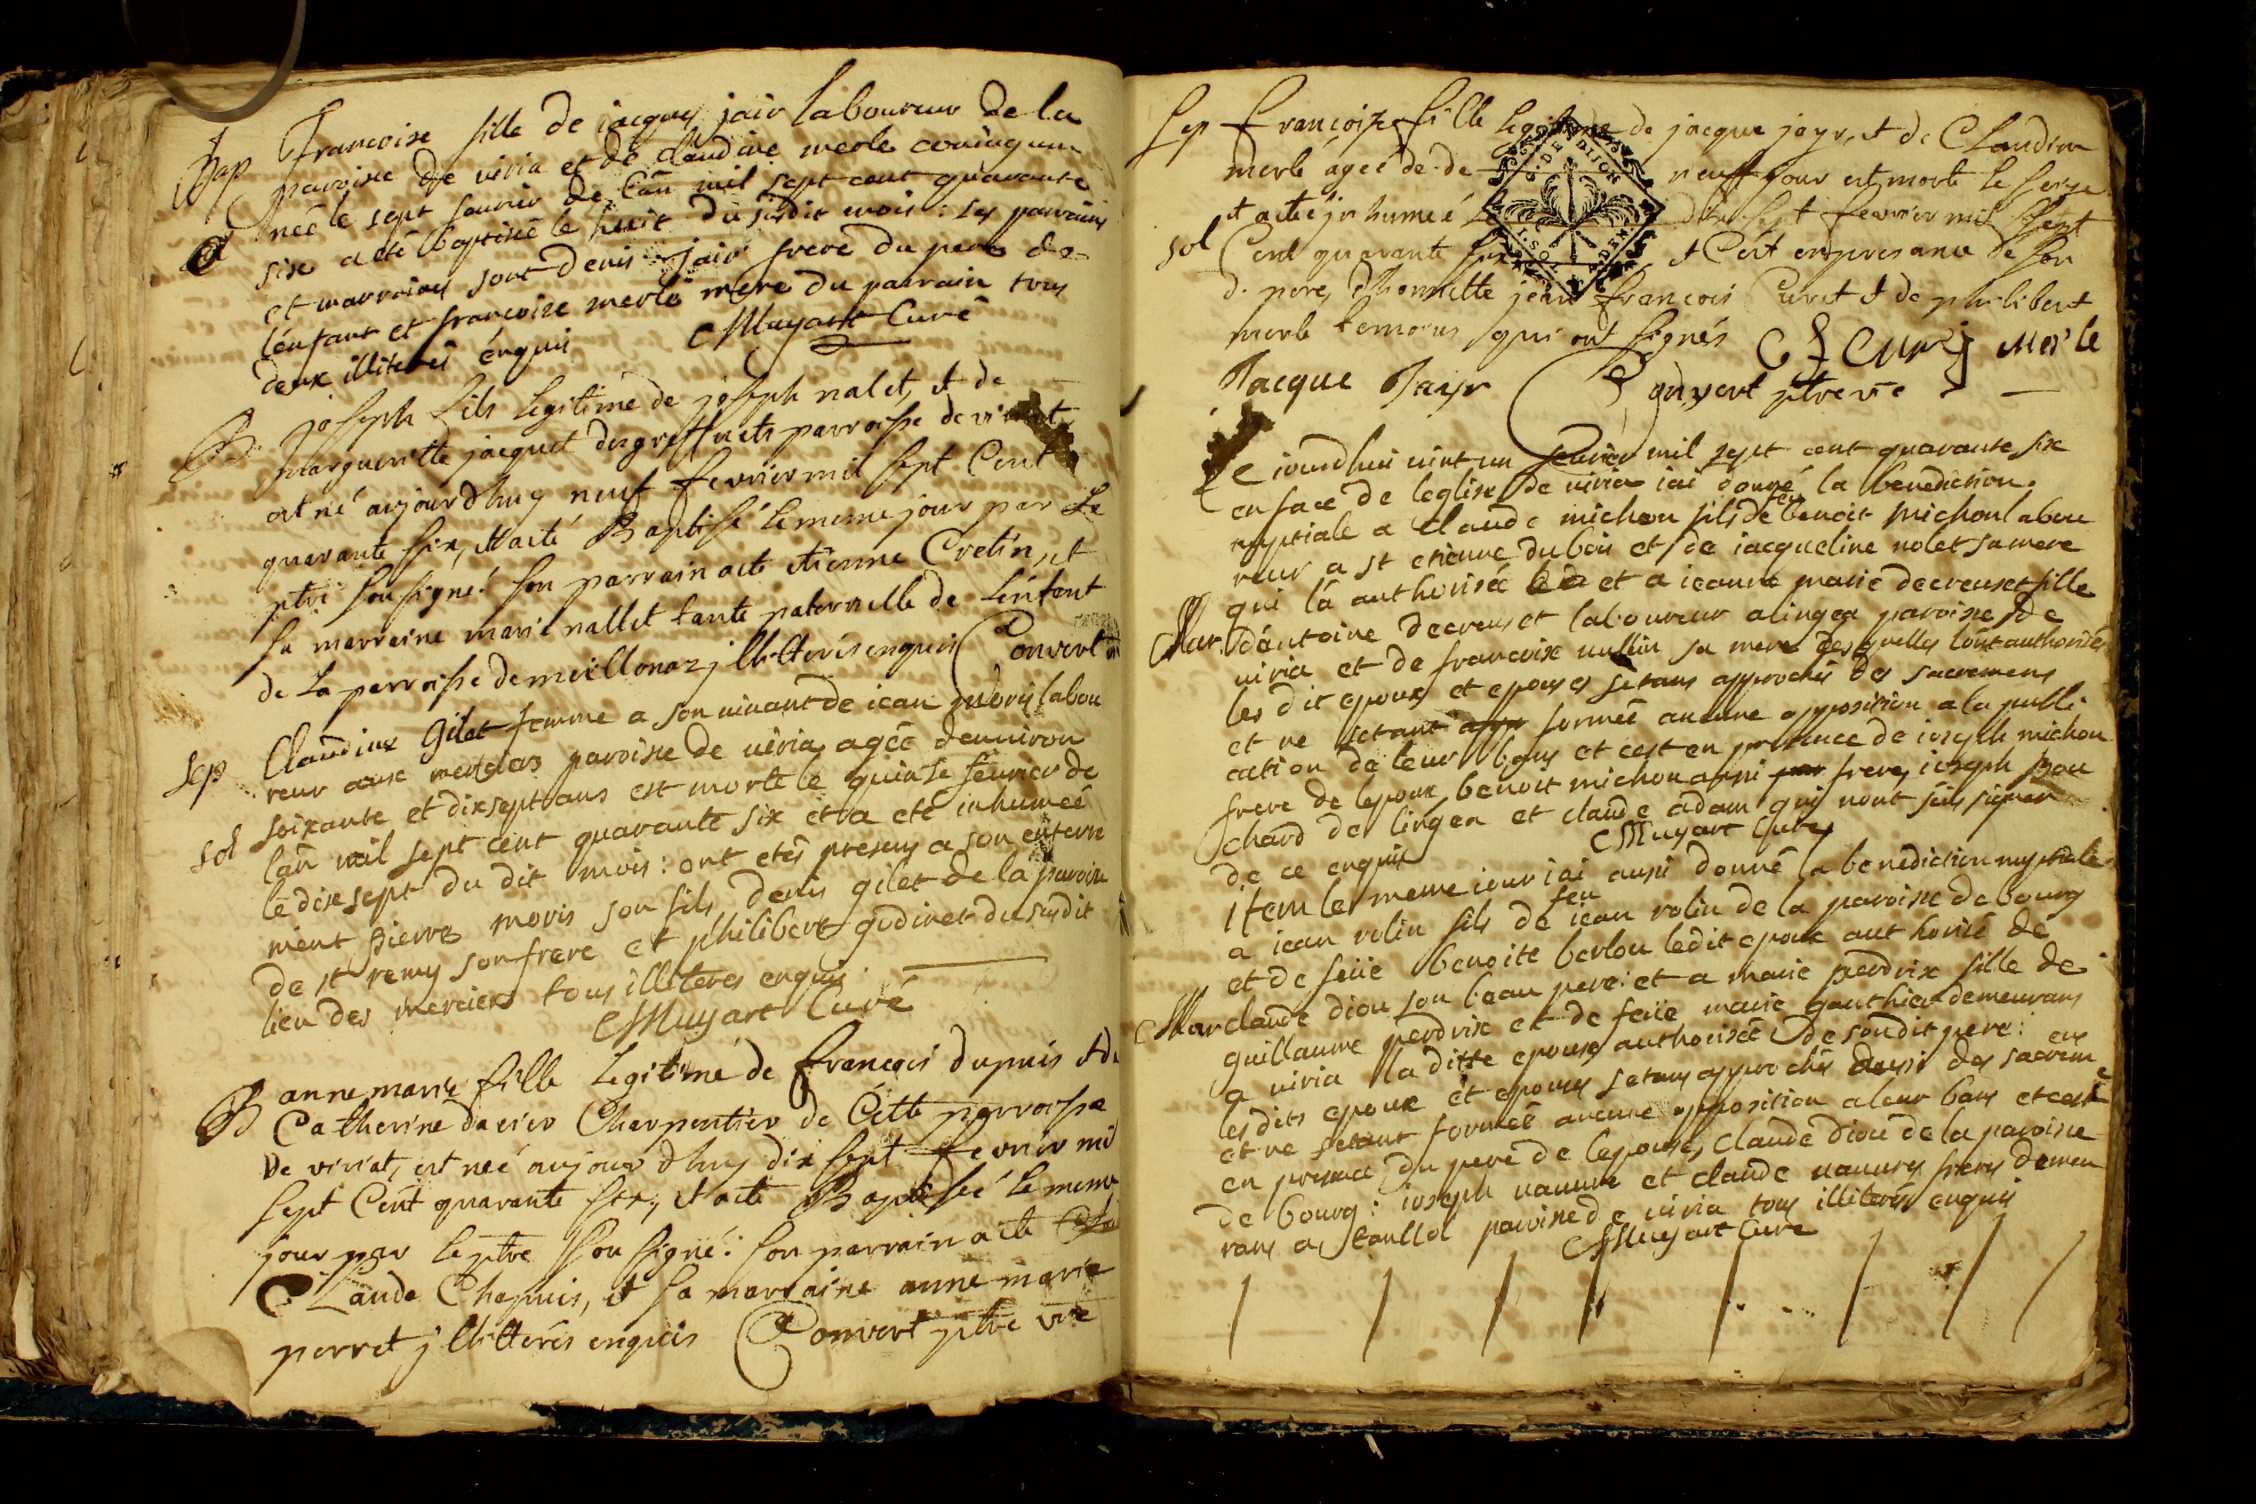 Bap Francoise fille de iacques jair laboureur de la
paroisse de viria et de claudine merle conioques
née le sept feurier de l'an mil sept cent quarante
six a eté baptisée le huit du susdit mois : les parrains
et marraines sont denis jair frere du pere de
l'enfant et francoise merle mere du parrain tous
deux illiterés enquis Muyart Curé
B. joseph fils legitime de joseph nalet, et de
margueritte jacquet des greffets parroisse de viriat
est né aujourdhuy neuf fevrier mil sept Cent
quarante six, et a été Baptisé le meme jour par Le
ptre sousigné. son parrain a eté etienne Cretin, et
sa marreine marie nallet tante paternelle de L'enfant
de La parroisse de meillonaz jllitterés enquis Convert
Sep Claudine Gilet femme a son uiuant de iean moris labou
reur aux merciers paroisse de uiria agée denuiron
soixante et dixsept ans est morte le quinse feurier de
sol lan mil sept cent quarante six et a eté inhumée
le dixsept du dit mois : ont etés presens a son enterre
ment pierre moris son fils denis gilet de la paroisse
de st remy son frere et philibert godinet du susdit
lieu des merciers tous illiteres enquis
Muyart Curé
B anne marie fille Legitime de francois dupuis et de
Catherine dacier Charpentier de Cette parroisse
de viriat, est neé aujourdhuy dix sept fevrier mil
sept Cent quarante six, et a eté Baptisé le meme
jour par le ptre sousigné : son parrain a eté
Claude Chapuis, et sa marraine anne marie
perret jllitterés enquis Convert ptre vre
Sep francoise fille legitime de jacque jayr, et de Claudine
merle ageé de de neuf jour est morte le seize
et a eté jnhumeé Le dix sept fevrier mil sept
sol Cent quarante six et C'est en presance de son
d. pere, d'honnette jean francois Curet et de philibert
merle temoins qui ont signés merle
Jacque Jayr Convert ptre vre
Ce iourdhui uint un feurier mil sept cent quarante six
en face de leglise de uiria iai donné la benediction
nuptiale a claude michon fils de feu benoit michon labou
reur a st etienne du bois et de iacqueline nolet sa mere
qui la authorisée et a ieanne marie decreuset fille
Mar. dantoine decreuset laboureur a lingea paroisse de
uiria et de francoise nullin sa mere lesquelles lont authorisée
les dit epoux et epouses setans approchés des sacremens
et ne setant formée aucune opposition a la publi
cation de leur bans et cest en presence de ioseph michon
frere de lepoux benoit michon aussi frere, ioseph bou
chard de lingea et claude adam qui nont sceu signer
de ce enquis Muyart Curé
item le meme iour iai aussi donné la benediction nuptiale
a iean rolin fils de feu iean rolin de la paroisse de bourg
et de feüe benoite berlou ledit epoux authorisé de
Mar claude diou son beau pere : et a marie perdrix fille de
guillaume perdrix et de feüe marie gauthier demeurans
a uiria la ditte epouse authorisée de son dit pere :
les dits epoux et epouses setans approchés des sacremens
et ne setant formée aucune opposition a leur bans et cest
en presence du pere de lepouse, claude diou de la paroisse
de bourg : ioseph uanure et claude uanures freres demeu
rans a paroisse de uiria tous illiterés enquis
Muyart Curé